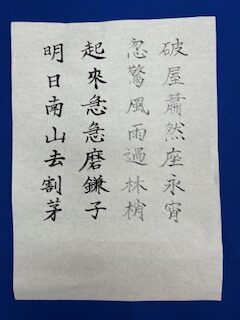 破屋蕭然座永宵
忽驚風雨過林梢
起來急急磨鎌子
明日南山去割茅